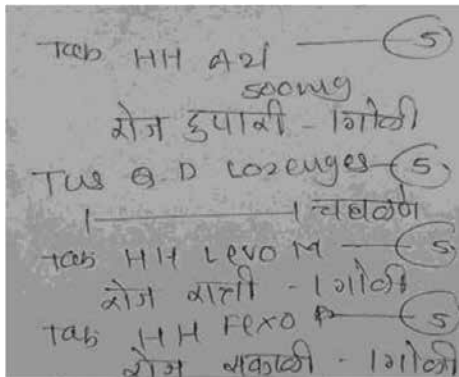 Tab HH AZI — 5
500mg
रोज दुपारी - 1 गोळी
TUS Q-D Lozenges — 5
1 — 1 चघळणे
Tab HH Levo M — 5
रोज रात्री - 1 गोळी
Tab HH Fexo — 5
रोज सकाळी - 1 गोळी